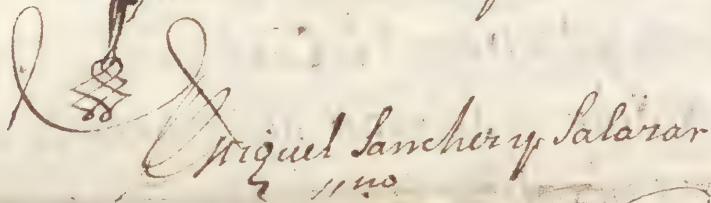 Miguel Sanchez y Salazar
no